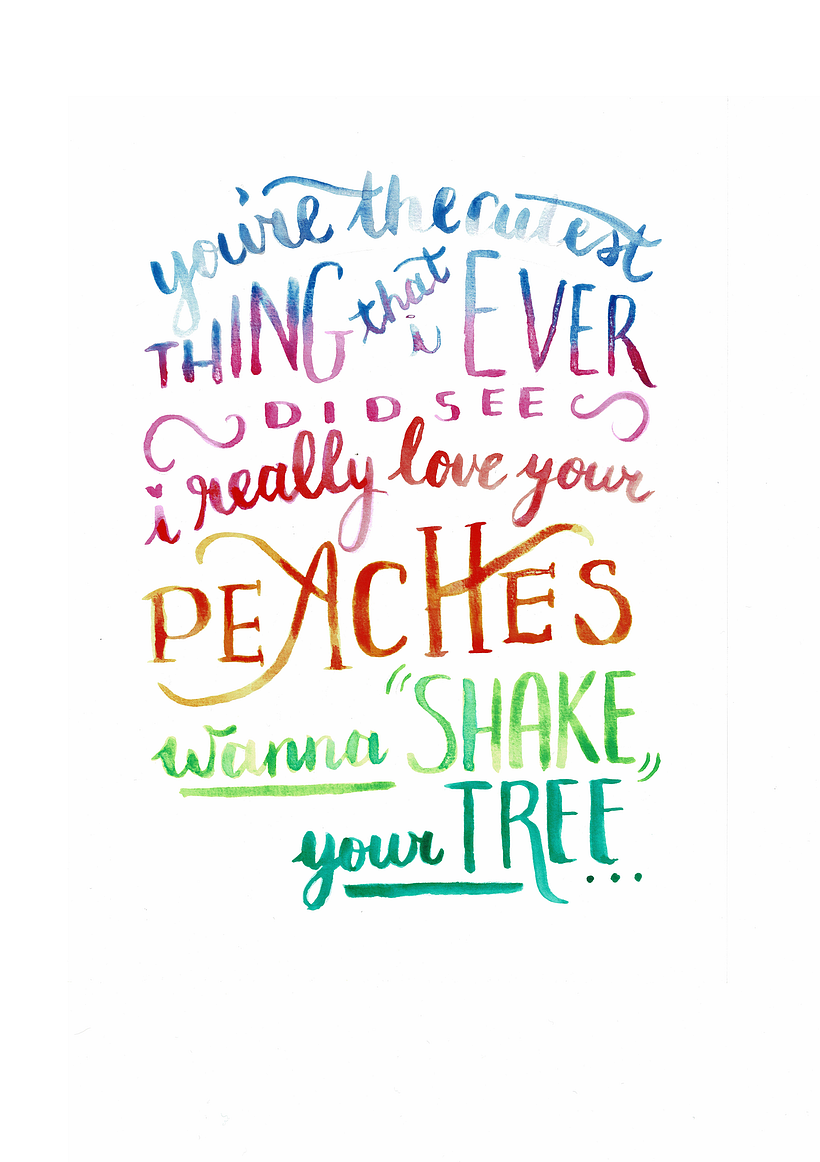 you're the cutest
THING that i EVER
DID SEE
i really love your
PEACHES
wanna "SHAKE„
your TREE...